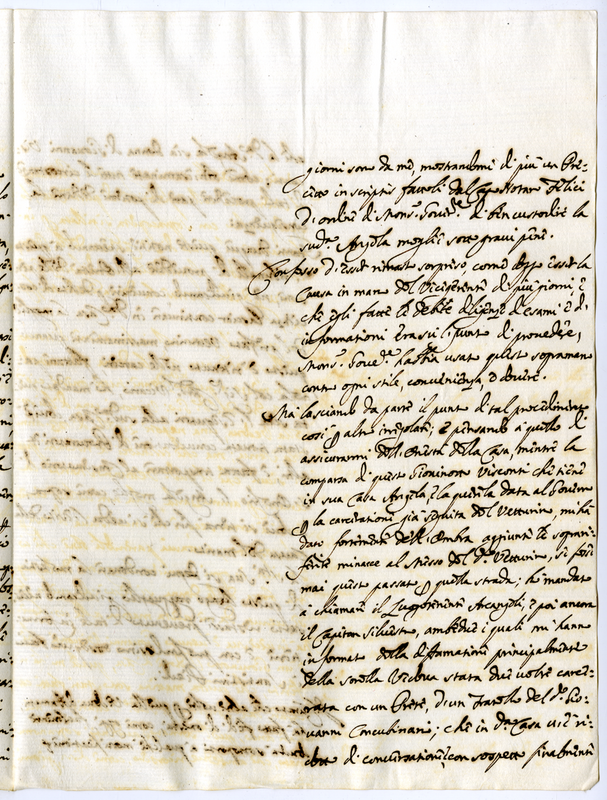 giorni sono da me, mostrandomi di più un Pre-
cetto in scriptis fattoli dal Notaro Felici
d'ordine di Mons.r Gove.re di ben custodire la
sud.a Angola moglie sotto gravi pene.
Confesso d'esser rimasto sorpriso, come doppo esser la
Causa in mano del Vicegerente di più giorni e
che egli fatte le debite diligenze d'esami e d'
informationi era sul punto di procedere,
Mons.r Gove.re habbia usato questo sopramano
contro ogni stile, convenienza, e dovere.
Ma lasciando da parte il punto di tal procedimento
così altro irregolare, e pensando a quello di
assicurarmi dell'onestà della Casa, mentre la
comparsa di questo Giovinotto Visconti che tiene
in sua Casa Angola, e la querela data al Governo
p la carceratione già seguita del Vetturino, mi ha
dato fortemente dell'ombra aggiunte le sopra
ferite minacce al stesso del d.o Vetturino, se più
mai questo passato p quella strada; ho mandato
a chiamare il Luogotenente Arcangeli, e poi ancora
il Capitan Silvestro, ambedue i quali mi hanno
informato della diffamatione principalmente
della sorella Vedova stata due volte carce-
rata con un Prete, e un fratello del d.o Gio-
vanni Concubinario; che in d.a Casa vi è ri-
dotto di conversationi con sospetto finalmente